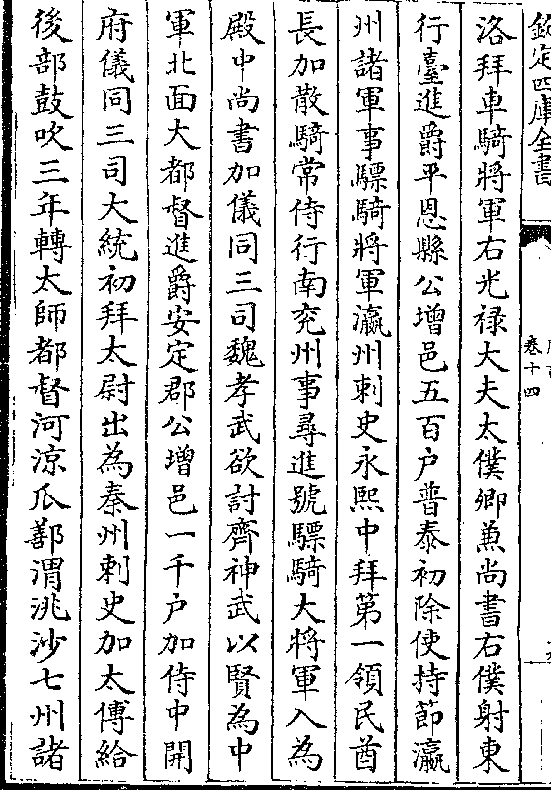 欽定四庫全書
卷十四
洛拜車騎將軍右光禄大夫太僕卿兼尚書右僕射東
行臺進爵平恩縣公增邑五百户普泰初除使持節瀛
州諸軍事驃騎將軍瀛州刺史永熙中拜第一領民酋
長加散騎常侍行南兖州事尋進號驃騎大將軍入為
殿中尚書加儀同三司魏孝武欲討齊神武以賢為中
軍北面大都督進爵安定郡公增邑一千户加侍中開
府儀同三司大統初拜太尉出為秦州刺史加太傅給
後部鼓吹三年轉太師都督河涼瓜鄯渭洮沙七州諸